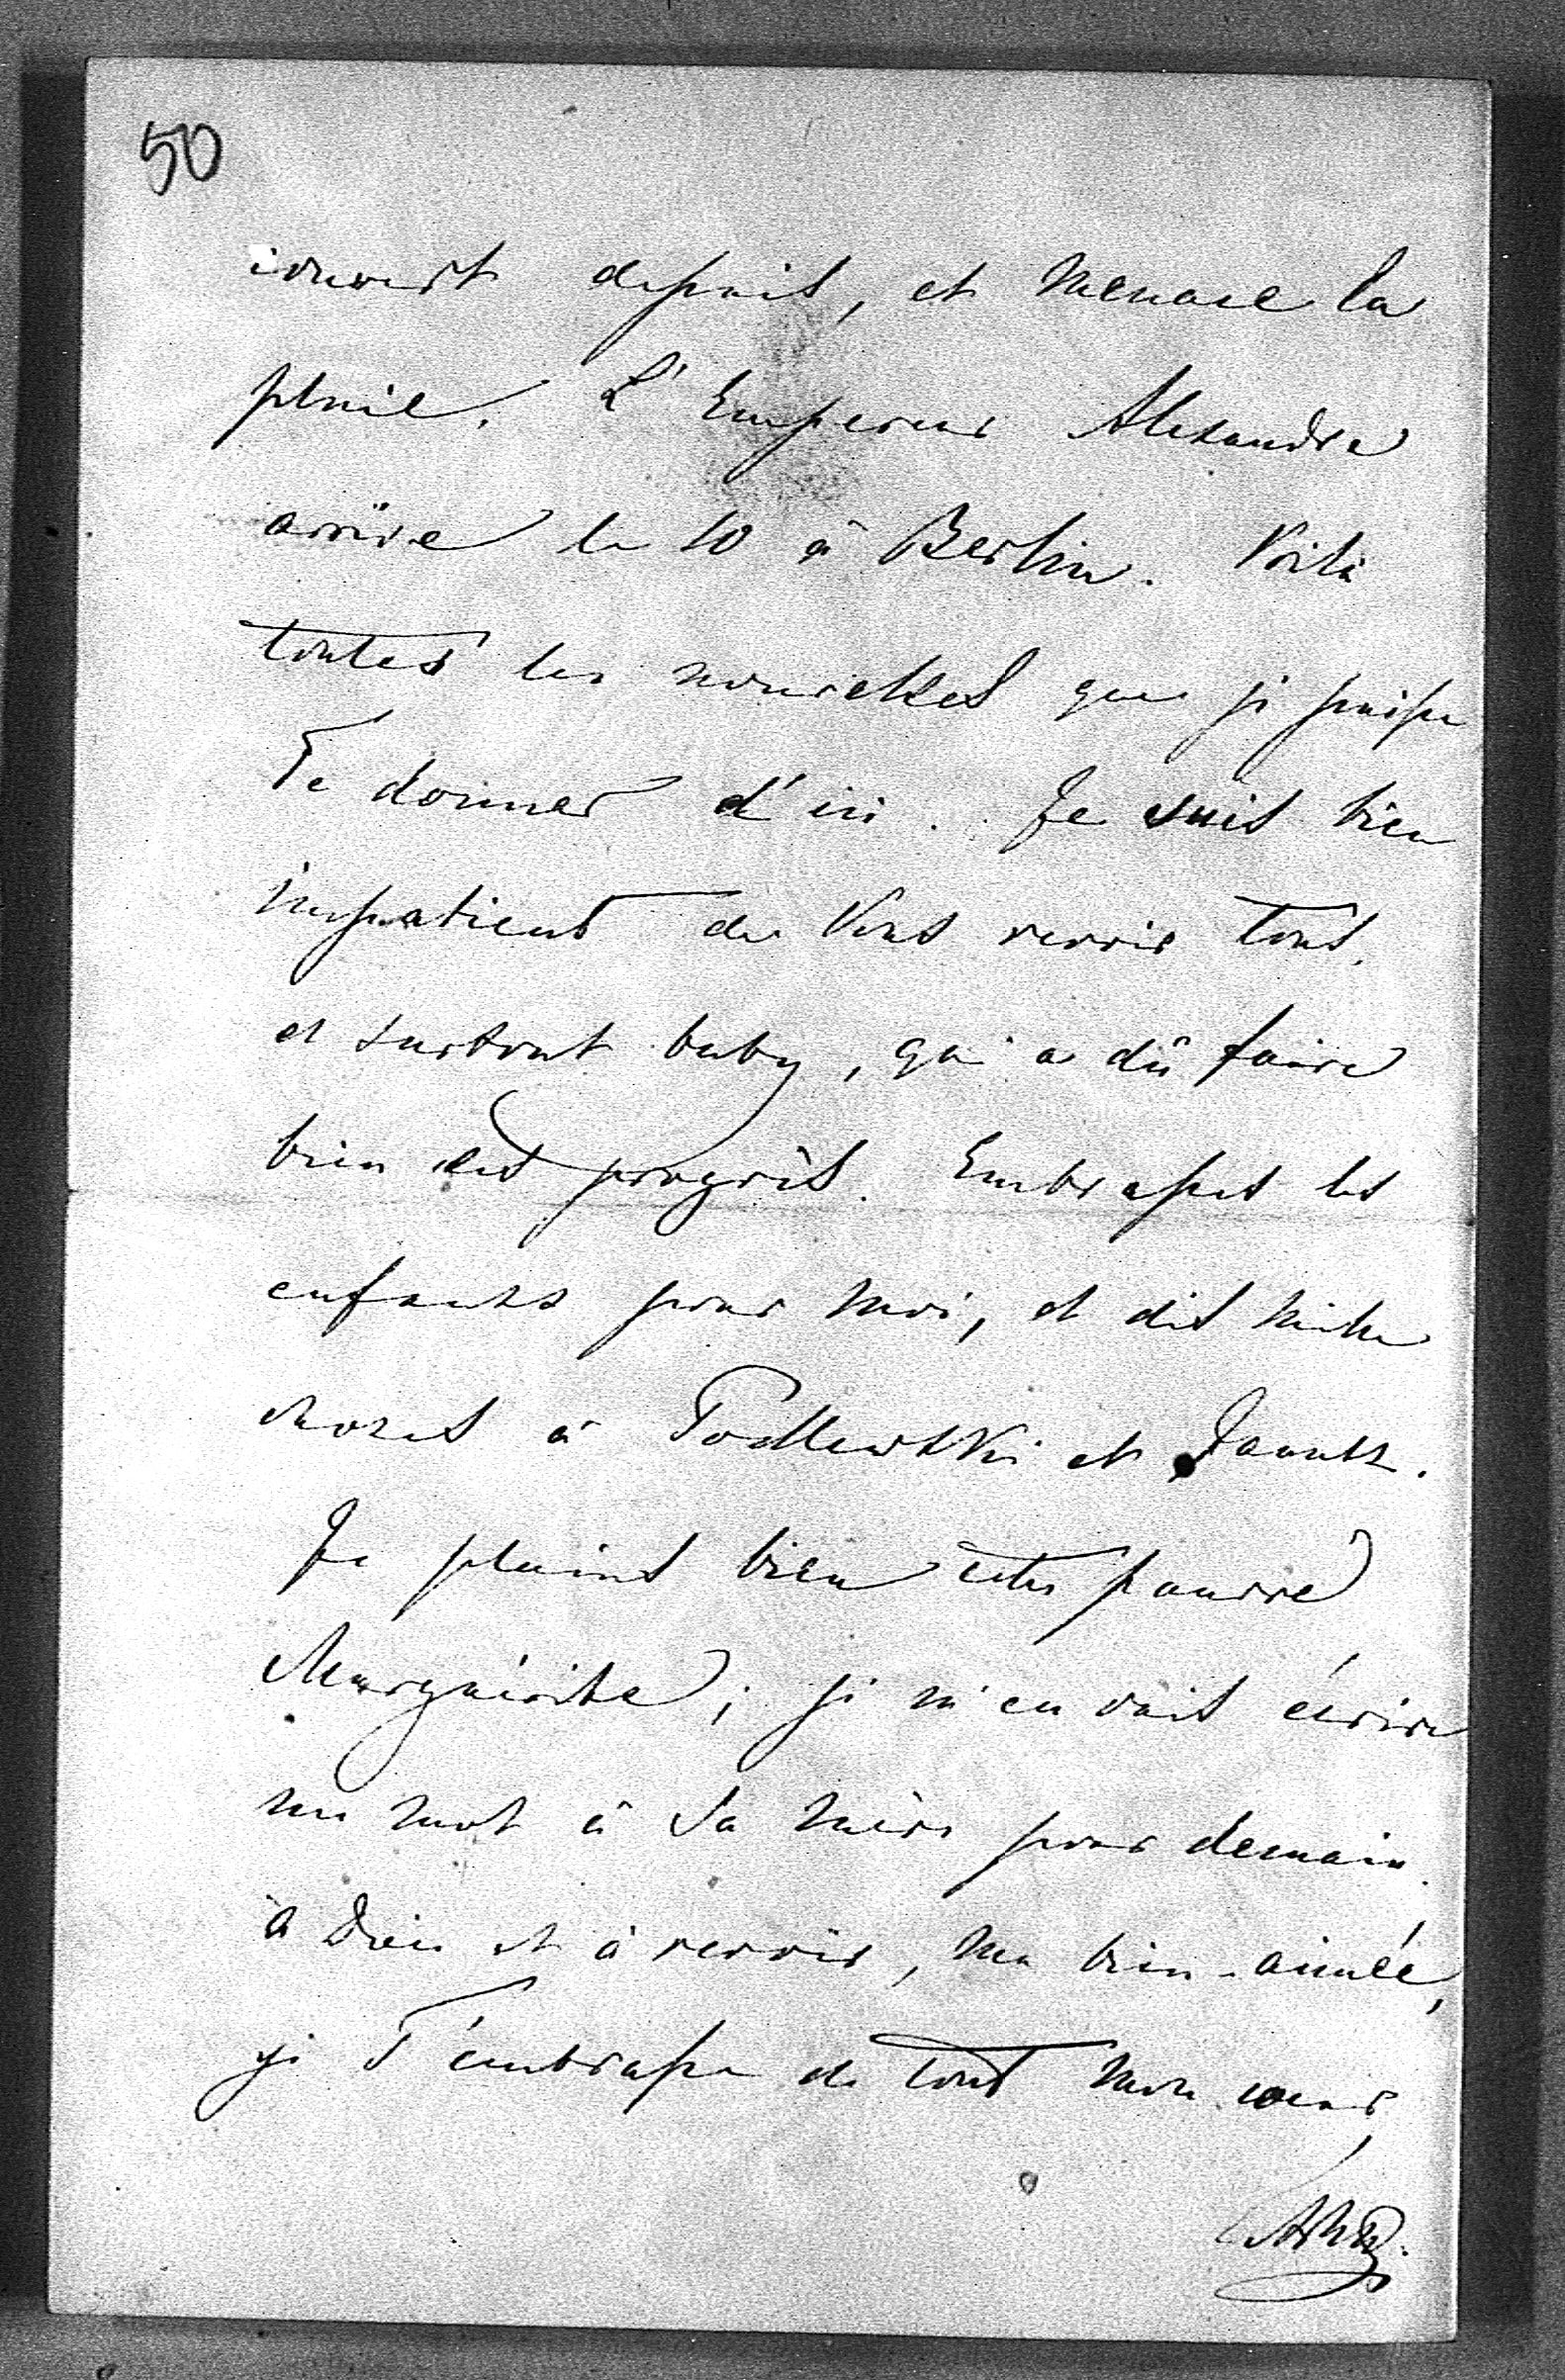 50
couvert depuis, et menace la
pluie. L'Empereur Alexandre
arrive le 10 à Berlin. Voilà
toutes les nouvelles que je puisse
Te donner d'ici. Je suis bien
impatient de Vous revoir tous,
et surtout baby, qui a dû faire
bien des progrès. Embrasses les
enfants pour moi, et dis mille
choses à Podlewski et
Je plains bien cette pauvre
Marguérite; je m'en vais écrire
un mot à Sa mère pour demain.
à Dieu et à revoir, ma bien-aimée,
je T'embrasse de tout mon cœur,